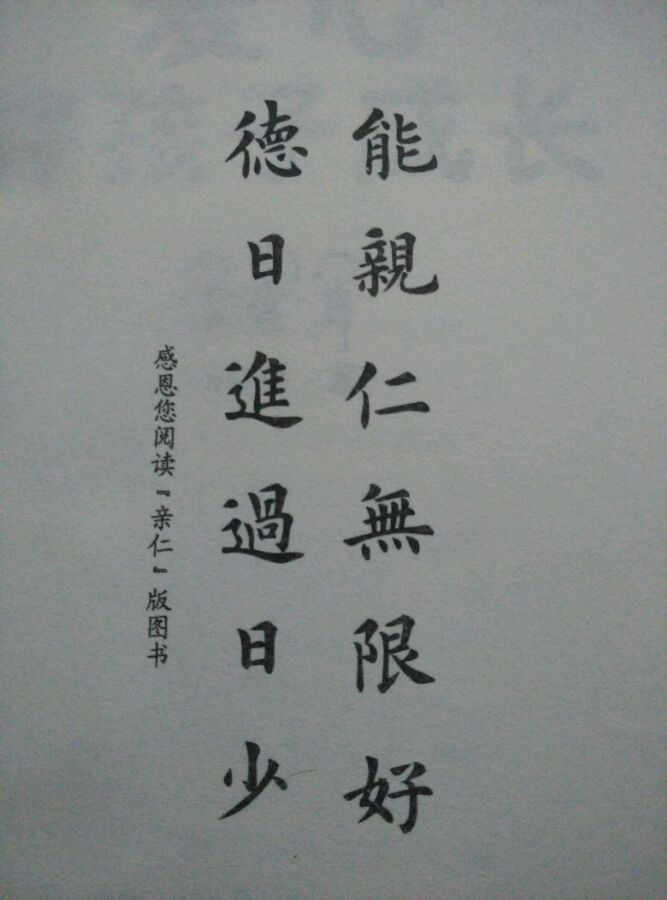 能親仁無限好
德日進過日少
感恩您阅读『亲仁』版图书